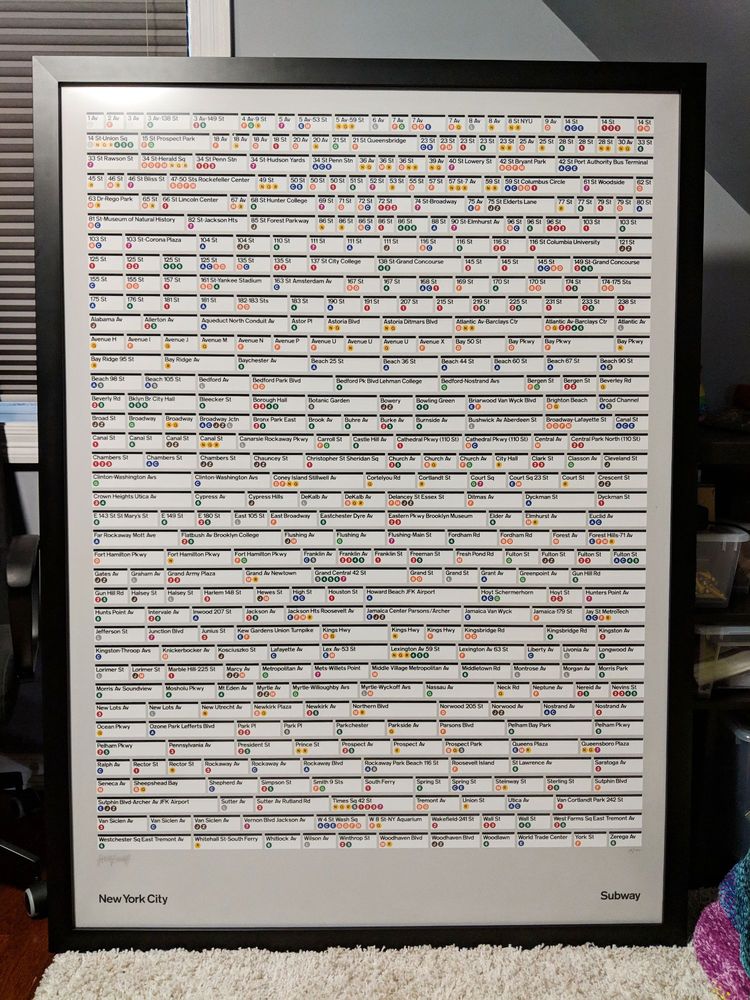 1 Av 2 Av 3 Av 3 Av-138 St 3 Av-149 St 4 Av-9 St 5 Av 5 Av-53 St 5 Av-59 St 6 Av 7 Av 7 Av 7 Av 8 Av 8 Av 8 St NYU 9 Av 14 St 14 St 14 St
14 St-Union Sq 15 St Prospect Park 18 Av 18 Av 18 Av 18 St 20 Av 21 St 21 St Queensbridge 23 St 23 St 23 St 23 St 23 St 25 Av 25 St 28 St 28 St 28 St 30 Av
33 St Rawson St 34 St-Herald Sq 34 St Penn Stn 34 St-Hudson Yards 34 St Penn Stn 36 Av 36 St 36 St 39 Av 40 St Lowery St 42 St Bryant Park 42 St Port Authority Bus Terminal
45 St 46 St 46 St Bliss St 47-50 Sts Rockefeller Center 49 St 50 St 50 St 50 St 51 St 52 St 53 St 55 St 57 St 57 St-7 Av 59 St 59 St 59 St Columbus Circle 61 St Woodside 62 St
63 Dr-Rego Park 65 St 66 St Lincoln Center 67 Av 68 St Hunter College 69 St 71 St 72 St 72 St 74 St-Broadway 75 Av 75 St Elderts Lane 77 St 77 St 79 St 79 St 80 St
81 St-Museum of Natural History 82 St-Jackson Hts 85 St Forest Parkway 86 St 86 St 86 St 86 St 86 St 88 St 90 St-Elmhurst Av 96 St 96 St 96 St 103 St 103 St
103 St 103 St-Corona Plaza 104 St 104 St 110 St 111 St 111 St 111 St 116 St 116 St 116 St 116 St Columbia University 121 St
125 St 125 St 125 St 125 St 135 St 135 St 137 St City College 138 St-Grand Concourse 145 St 145 St 145 St 149 St-Grand Concourse
155 St 155 St 157 St 161 St-Yankee Stadium 163 St Amsterdam Av 167 St 167 St 168 St 169 St 170 St 170 St 174 St 174-175 Sts
175 St 176 St 181 St 181 St 182 183 Sts 183 St 190 St 191 St 207 St 215 St 219 St 225 St 231 St 233 St 238 St
Alabama Av Allerton Av Aqueduct North Conduit Av Astor Pl Astoria Blvd Astoria Ditmars Blvd Atlantic Av-Barclays Ctr Atlantic Av-Barclays Ctr Atlantic Av
Avenue H Avenue I Avenue J Avenue M Avenue N Avenue P Avenue U Avenue U Avenue U Avenue X Bay 50 St Bay Pkwy Bay Pkwy Bay Pkwy
Bay Ridge 95 St Bay Ridge Av Baychester Av Beach 25 St Beach 36 St Beach 44 St Beach 60 St Beach 67 St Beach 90 St
Beach 98 St Beach 105 St Bedford Av Bedford Park Blvd Bedford Pk Blvd Lehman College Bedford-Nostrand Avs Bergen St Bergen St Beverley Rd
Beverly Rd Bklyn Br City Hall Bleecker St Borough Hall Botanic Garden Bowery Bowling Green Briarwood Van Wyck Blvd Brighton Beach Broad Channel
Broad St Broadway Broadway Broadway Jctn Bronx Park East Brook Av Buhre Av Burke Av Burnside Av Bushwick Av Aberdeen St Broadway-Lafayette St Canal St
Canal St Canal St Canal St Canal St Canarsie Rockaway Pkwy Carroll St Castle Hill Av Cathedral Pkwy (110 St) Cathedral Pkwy (110 St) Central Av Central Park North (110 St)
Chambers St Chambers St Chambers St Chauncey St Christopher St Sheridan Sq Church Av Church Av Church Av City Hall Clark St Classon Av Cleveland St
Clinton-Washington Avs Clinton-Washington Avs Coney Island Stillwell Av Cortelyou Rd Cortlandt St Court Sq Court Sq 23 St Court St Crescent St
Crown Heights Utica Av Cypress Av Cypress Hills DeKalb Av DeKalb Av Delancey St Essex St Ditmas Av Dyckman St Dyckman St
E 143 St St Mary's St E 149 St E 180 St East 105 St East Broadway Eastchester Dyre Av Eastern Pkwy Brooklyn Museum Elder Av Elmhurst Av Euclid Av
Far Rockaway Mott Ave Flatbush Av Brooklyn College Flushing Av Flushing Av Flushing-Main St Fordham Rd Fordham Rd Forest Av Forest Hills-71 Av
Fort Hamilton Pkwy Fort Hamilton Pkwy Fort Hamilton Pkwy Franklin Av Franklin Av Franklin St Freeman St Fresh Pond Rd Fulton St Fulton St Fulton St Fulton St
Gates Av Graham Av Grand Army Plaza Grand Av Newtown Grand Central 42 St Grand St Grand St Grant Av Greenpoint Av Gun Hill Rd
Gun Hill Rd Halsey St Halsey St Harlem 148 St Hewes St High St Houston St Howard Beach JFK Airport Hoyt Schermerhorn Hoyt St Hunters Point Av
Hunts Point Av Intervale Av Inwood 207 St Jackson Av Jackson Hts Roosevelt Av Jamaica Center Parsons/Archer Jamaica Van Wyck Jamaica-179 St Jay St MetroTech
Jefferson St Junction Blvd Junius St Kew Gardens Union Turnpike Kings Hwy Kings Hwy Kings Hwy Kingsbridge Rd Kingsbridge Rd Kingston Av
Kingston-Throop Avs Knickerbocker Av Kosciuszko St Lafayette Av Lex Av-53 St Lexington Av-59 St Lexington Av 63 St Liberty Av Livonia Av Longwood Av
Lorimer St Lorimer St Marble Hill-225 St Marcy Av Metropolitan Av Mets-Willets Point Middle Village Metropolitan Av Middletown Rd Montrose Av Morgan Av Morris Park
Morris Av Soundview Mosholu Pkwy Mt Eden Av Myrtle Av Myrtle-Willoughby Avs Myrtle-Wyckoff Avs Nassau Av Neck Rd Neptune Av Nereid Av Nevins St
New Lots Av New Lots Av New Utrecht Av Newkirk Plaza Newkirk Av Northern Blvd Norwood 205 St Norwood Av Nostrand Av Nostrand Av
Ocean Pkwy Ozone Park Lefferts Blvd Park Pl Park Pl Parkchester Parkside Av Parsons Blvd Pelham Bay Park Pelham Pkwy
Pelham Pkwy Pennsylvania Av President St Prince St Prospect Av Prospect Av Prospect Park Queens Plaza Queensboro Plaza
Ralph Av Rector St Rector St Rockaway Av Rockaway Av Rockaway Blvd Rockaway Park Beach 116 St Roosevelt Island St Lawrence Av Saratoga Av
Seneca Av Sheepshead Bay Shepherd Av Simpson St Smith 9 Sts South Ferry Spring St Spring St Steinway St Sterling St Sutphin Blvd
Sutphin Blvd-Archer Av JFK Airport Sutter Av Sutter Av Rutland Rd Times Sq 42 St Tremont Av Union St Utica Av Van Cortlandt Park 242 St
Van Siclen Av Van Siclen Av Van Siclen Av Vernon Blvd Jackson Av W 4 St Wash Sq W 8 St-NY Aquarium Wakefield-241 St Wall St Wall St West Farms Sq East Tremont Av
Westchester Sq East Tremont Av Whitehall St-South Ferry Whitlock Av Wilson Av Winthrop St Woodhaven Blvd Woodhaven Blvd Woodlawn World Trade Center York St Zerega Av
New York City Subway